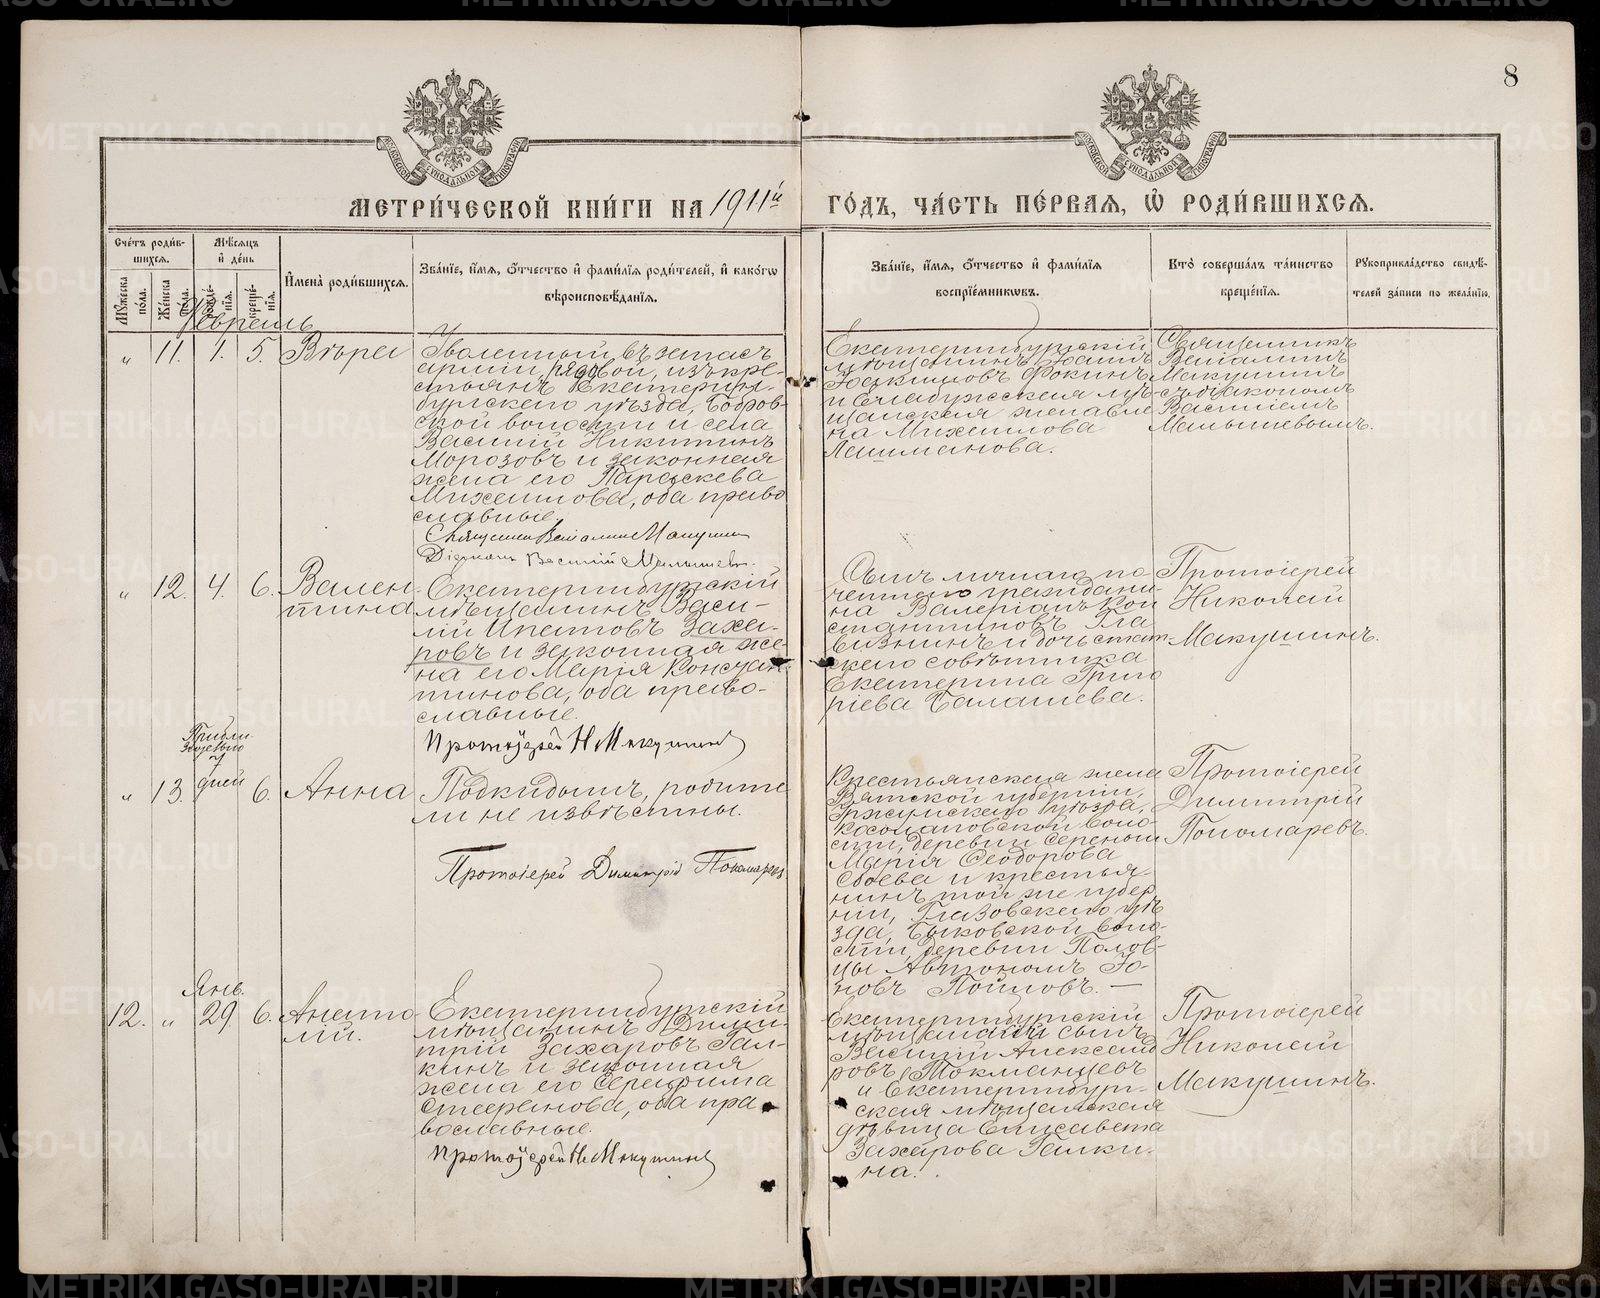 8
МЕТРИ́ЧЕСКОЙ КНИ́ГИ НА 1911й ГО́ДЪ, ЧА́СТЬ ПЕ́РВАЯ, Ѡ҆ РОДИ́ВШИХСЯ.
Сче́тъ роди́в-
шихся.
Мѣ́сяцъ
и҆ де́нь
Му́жеска
по́ла.
Же́нска
по́ла.
рожде́-
нїя.
креще́-
нїя.
И҆мена̀ роди́вшихся.
Зва́нїе, и҆́мя, ѻ҆́тчество и҆ фами́лїя роди́телей, и҆ како́гѡ
вѣроисповѣ́данїя.
Зва́нїе, и҆́мя, ѻ҆́тчество и҆ фами́лїя
воспрїе́мникѡвъ.
Кто̀ соверша́лъ та́инство
креще́нїя.
Рꙋкоприкла́дство свидѣ́-
телей за́писи по жела́нїю.
Февраль
" 11. 1. 5. Вѣра
Уволенный въ запасъ
арміи рядовой, изъ кре-
стьянъ Екатерин-
бургскаго уѣзда, Бобров-
ской волости и села
Василій Никитинъ
Морозовъ и законная
жена его Параскева
Михаилова, оба право
славные.
Священникъ Веніаминъ Макушинъ
Діаконъ Василій Малышевъ.
Екатеринбургскій
мѣщанинъ Іоаннъ
Іоакимовъ Фокинъ
и Елабужская мѣ-
щанская жена
Михаилова
Лашманова.
Священникъ
Веніаминъ
Макушинъ
съ діакономъ
Василіемъ
Малышевымъ.
" 12. 4. 6. Вален-
тина
Екатеринбургскій
мѣщанинъ Васи-
лій Ипатовъ Заха-
ровъ и законная же-
на его Марія Констан-
тинова, оба право-
славные.
Протоіерей Н Макушинъ
Сынъ личнаго по-
четнаго граждани-
на Валеріанъ Кон
стантиновъ Гла
визнинъ и дочь стат-
скаго совѣтника
Екатерина Григо
ріева Балашева.
Протоіерей
Николай
Макушинъ.
Прибли-
зительно
7
дней
" 13. 6. Анна
Подкидышъ, родите
ли не извѣстны.
Протоіерей Димитрій Пономаревъ
Крестьянская жена
Вятской губерніи,
Уржумскаго уѣзда,
воло-
сти, деревни
Марія Ѳеодорова
и крестья-
нинъ той же губер
ніи, Глазовскаго уѣ
зда, Быковской воло-
сти, деревни Полов-
цы Автономъ Іо-
новъ —
Протоіерей
Димитрій
Пономаревъ.
Янв.
12. " 29 6. Анато-
лій.
Екатеринбургскій
мѣщанинъ Дими-
трій Захаровъ Гал-
кинъ и законная
жена его Серафима
Стефанова, оба пра
вославные.
Протоіерей Н Макушинъ
Екатеринбургскій
мѣщанскій сынъ
Василій Александ
ровъ Токманцевъ
и Екатеринбург-
ская мѣщанская
дѣвица Елисавета
Захарова Галки-
на.
Протоіерей
Николай
Макушинъ.
METRIKI.GASO-URAL.RU